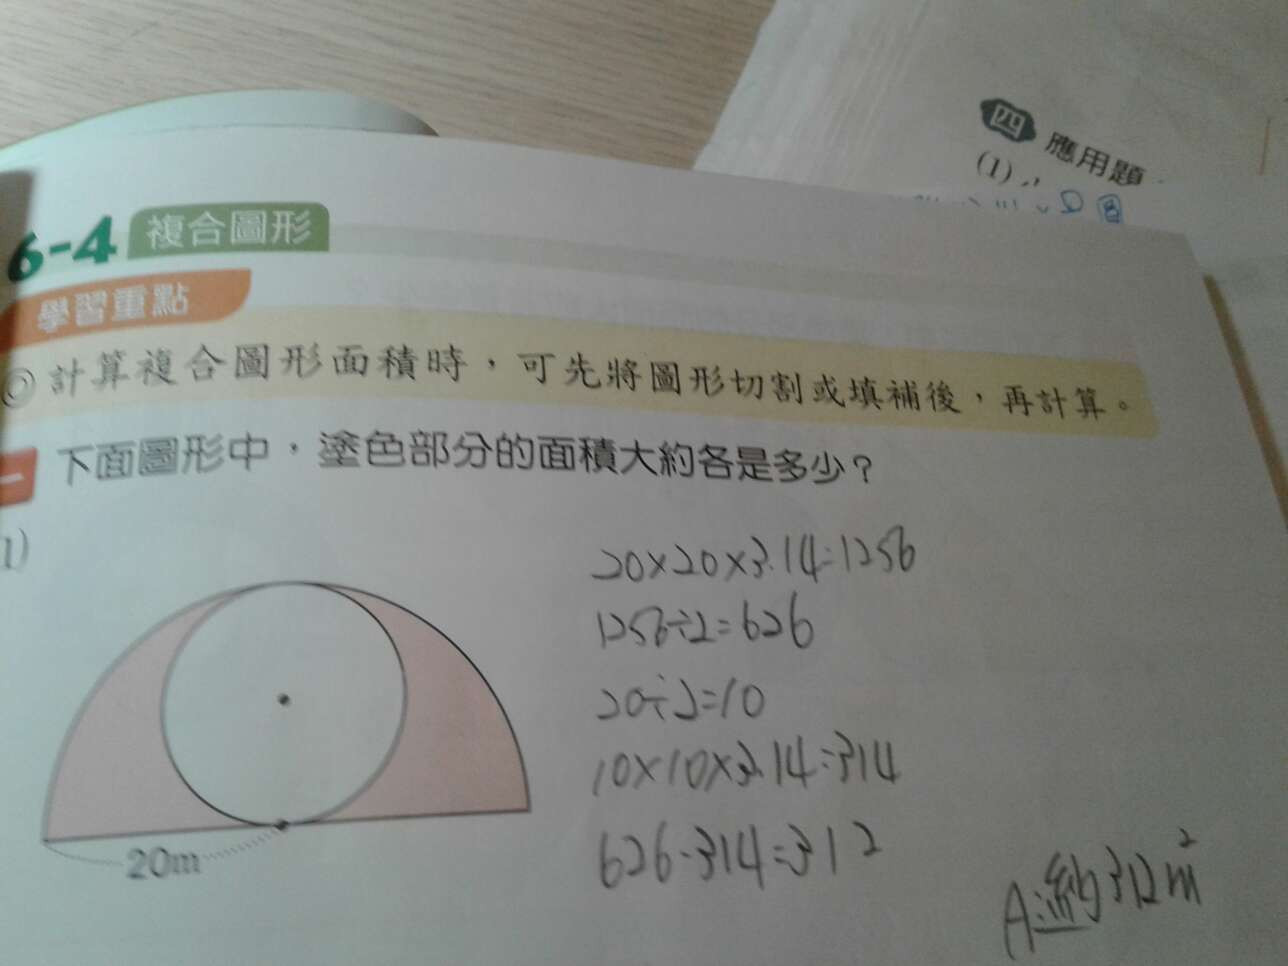 四 應用題
(1)
6-4 複合圖形
學習重點
◎計算複合圖形面積時，可先將圖形切割或填補後，再計算。
一 下面圖形中，塗色部分的面積大約各是多少？
(1)
20×20×3.14=1256
1256÷2=626
20÷2=10
10×10×3.14=314
626-314=312
20m
A:約312m²